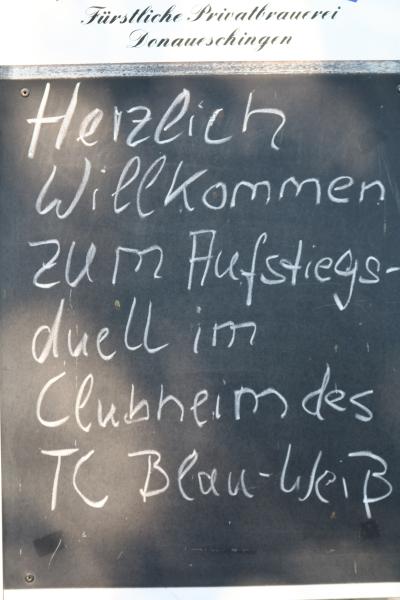 Fürstliche Privatbrauerei
Donaueschingen
Herzlich
Willkommen
zum Aufstiegs-
duell im
Clubheim des
TC Blau-Weiß